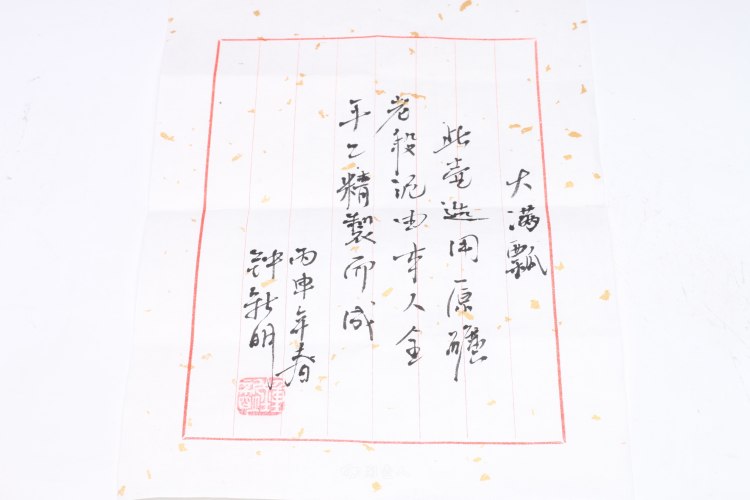 大满瓢
此壶选用原矿
老段泥由本人全
手工精製而成
丙申年春
钟新明